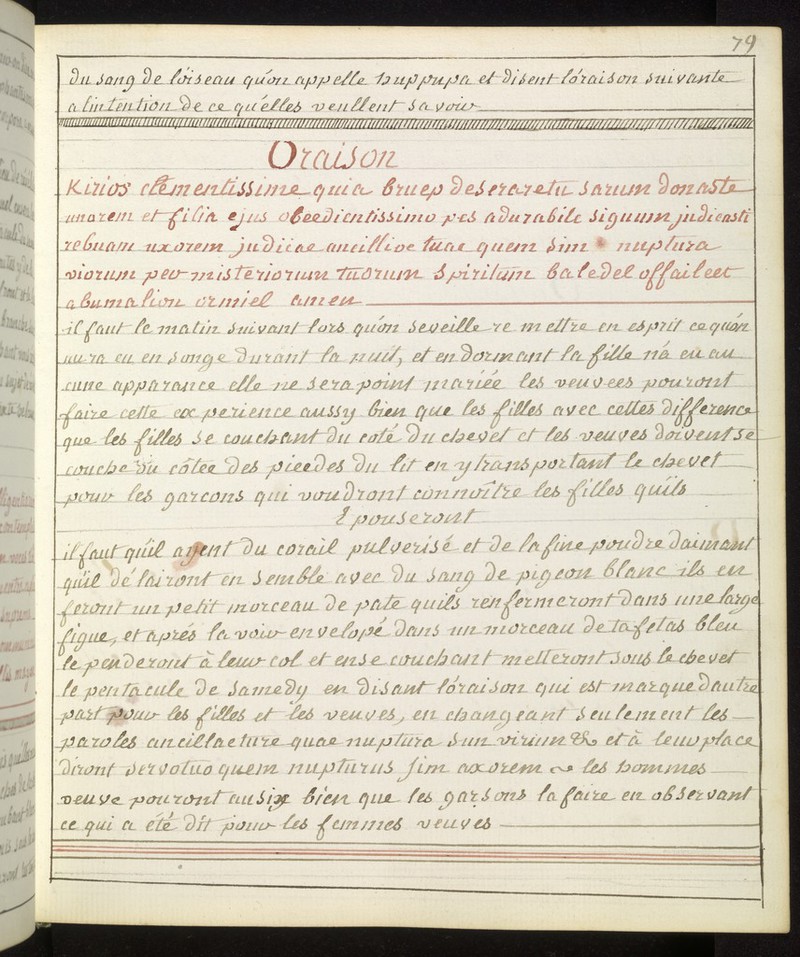 79
du sang de l'oiseau qu'on appelle huppupa et disent l'oraison suivante
a l'intention de ce qu'elles veullent savoir
Oraison
Kirios clementissime quia bruep deseraretu sarum donaste
unorem et filia ejus obeedientissimo pes adurabile siguum judicasti
rebuam uxorem judiiae ancillioe tuae quem sim nuptura
viorum per misteriorum tuorum spiritum baledel offaileet
abumalion ormiel amen
il faut le matin suivant lors qu'on seveille remettre en esprit ce qu'on
aura eu en songe durant la nuit, et en dormant la fille n'a eu au
cune apparance elle ne sera point mariée les veuvees pouront
faire cette experience aussy bien que les filles avec cettes difference
que les filles se couchant du coté du chevet et les veuves doivent se
couche du côtée des pieedes du lit en y transportant le chevet
pour les garcons qui voudront connoître les filles qu'ils
Epouseront
il faut qu'il ayent du corail pulverisé et de la fine poudre daimant
qu'il délairont en semble avec du sang de pigeon blanc ils en
feront un petit morceau de pate quils renfermeront dans une large
figue, et aprés la voir envelopé dans un morceau de tafetas bleu
le penderont à leur col et en se couchant metteront sous le chevet
le pentacule de samedy en disant l'oraison qui est marque dautre
part pour les filles et les veuves, en changeant seulement les
paroles ancillaeture quae nuptura sun virum & et à leur place
diront servotuo quem nupturus sim axorem ~ les hommes
veuve pouront ausix bien que les garsons la faire en observant
ce qui a été dit pour les femmes veuves